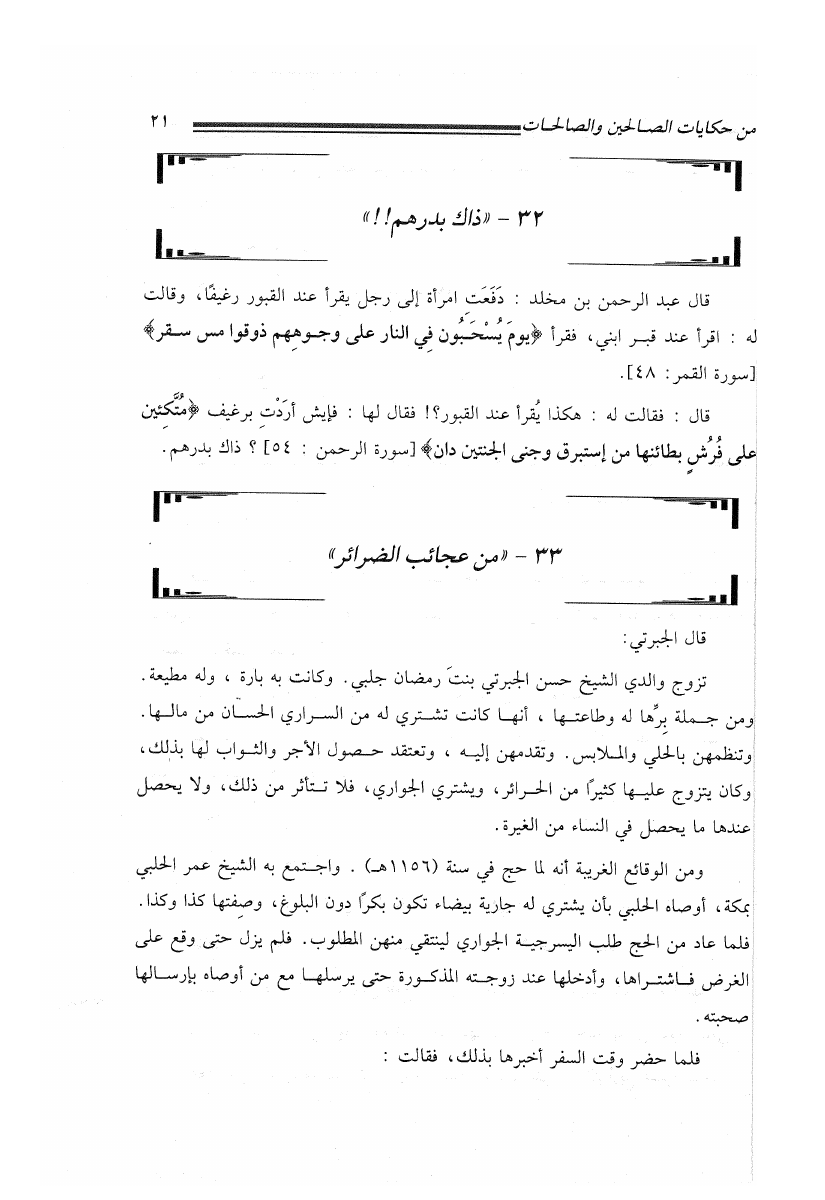 من حكايات الصالحين والصالحات ٢١
٣٢ - «ذاك بدرهم!!»
قال عبد الرحمن بن مخلد : دَفَعَتِ امرأة إلى رجل يقرأ عند القبور رغيفًا، وقالت
له : اقرأ عند قبر ابني، فقرأ ﴿يومَ يُسْحَبُون فِي النار على وجوههم ذوقوا مس سقر﴾
[سورة القمر: ٤٨].
قال : فقالت له : هكذا يُقرأ عند القبور؟! فقال لها : فإيش أرَدْتِ برغيف ﴿مُتَّكِئين
على فُرُشٍ بطائنها من إستبرق وجنى الجنتين دان﴾ [سورة الرحمن : ٥٤] ؟ ذاك بدرهم.
٣٣ - «من عجائب الضرائر»
قال الجبرتي:
تزوج والدي الشيخ حسن الجبرتي بنتَ رمضان جلبي. وكانت به بارة ، وله مطيعة.
ومن جملة بِرِّها له وطاعتها ، أنها كانت تشتري له من السراري الحسان من مالها.
وتنظمهن بالحلي والملابس. وتقدمهن إليه ، وتعتقد حصول الأجر والثواب لها بذلك،
وكان يتزوج عليها كثيرًا من الحرائر، ويشتري الجواري، فلا تتأثر من ذلك، ولا يحصل
عندها ما يحصل في النساء من الغيرة.
ومن الوقائع الغريبة أنه لما حج في سنة (١١٥٦هـ) . واجتمع به الشيخ عمر الحلبي
بمكة، أوصاه الحلبي بأن يشتري له جارية بيضاء تكون بكرًا دون البلوغ، وصفتها كذا وكذا.
فلما عاد من الحج طلب اليسرجية الجواري لينتقي منهن المطلوب. فلم يزل حتى وقع على
الغرض فاشتراها، وأدخلها عند زوجته المذكورة حتى يرسلها مع من أوصاه بإرسالها
صحبته.
فلما حضر وقت السفر أخبرها بذلك، فقالت :